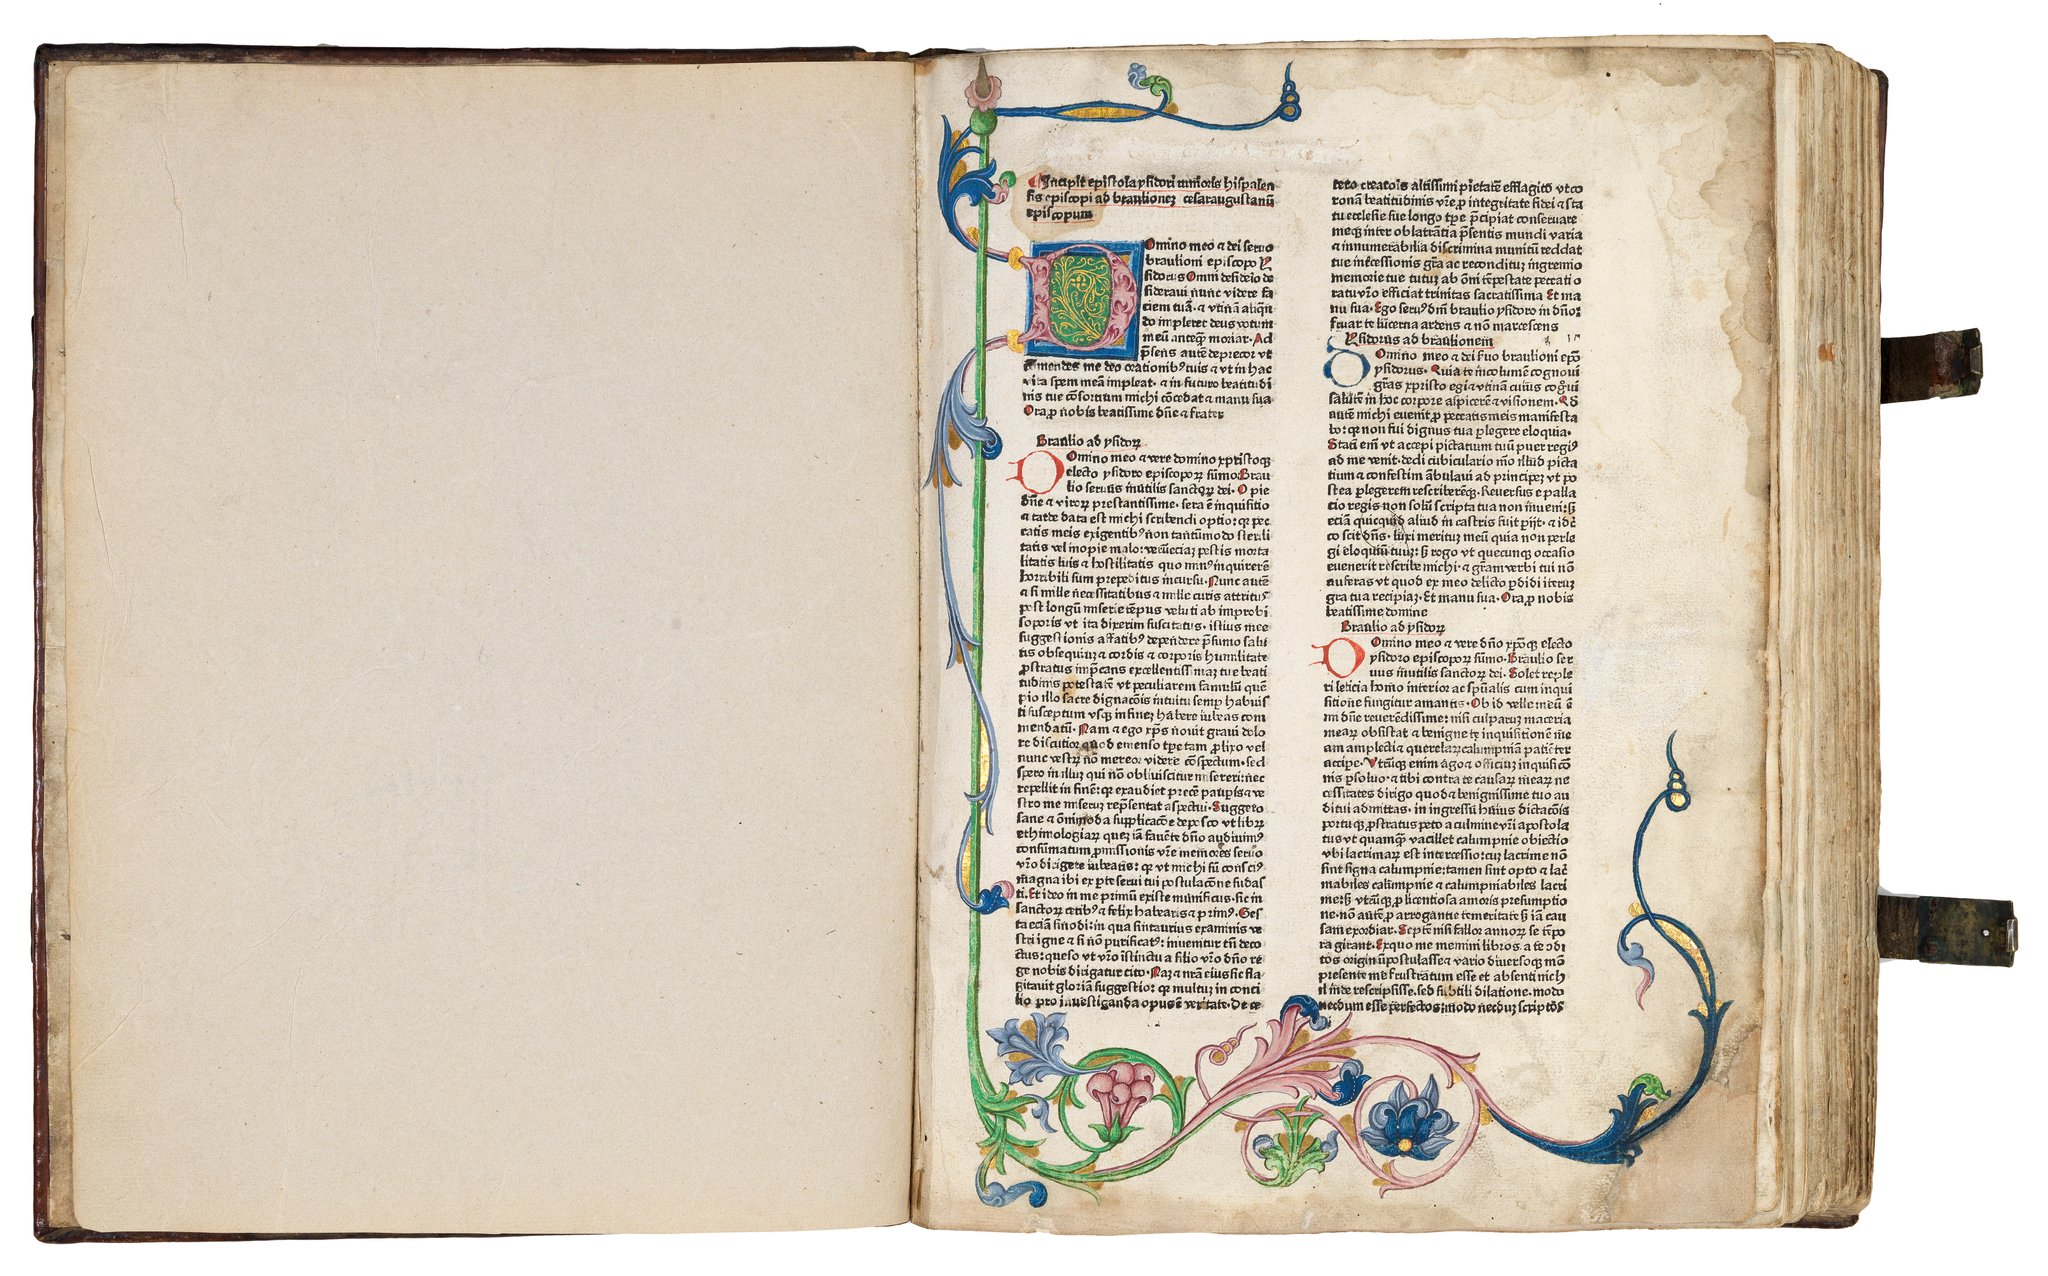 Incipit epistola ysidori iunioris hispalen
sis episcopi ad braulionem cesaraugustanū
episcopum
Domino meo ⁊ dei seruo
braulioni episcopo Y
sidorus Omni desiderio de
sideraui nūnc videre fa
ciem tuā· ⁊ vtinā aliqn̄
do impleret deus votum
meū anteꝙ̄ moriar· Ad
p̄sens autē deprecor vt
cōmendes me deo orationibꝰ tuis ⁊ vt in hac
vita spem meā impleat· ⁊ in futuro beatitudi
nis tue cōsortium michi cōcedat ⁊ manu sua
Ora ꝓ nobis beatissime dn̄e ⁊ frater
Braulio ad ysidoꝝ
Domino meo ⁊ vere domino xp̄ristoqꝫ
electo ysidoro episcopoꝝ sūmo Brau
lio seruus inutilis sanctoꝝ dei· O pie
dn̄e ⁊ viroꝝ prestantissime· sera ē inquisitio
⁊ tarde data est michi scribendi optio: qꝫ pec
catis meis exigentibꝰ non tantūmodo sterili
tatis vel inopie malo: verūeciaꝫ pestis morta
litatis luis ⁊ hostilitatis quo minꝰ inquirerē
horribili sum prepeditus incursu· Nunc autē
⁊ si mille necessitatibus ⁊ mille curis attritus
post longū miserie tēpus veluti ab improbi
soporis vt ita dixerim suscitatus· istius mee
suggestionis affatibꝰ dependere p̄sumo salu
tis obsequiuꝫ ⁊ cordis ⁊ corporis humilitate
ꝓstratus imp̄cans excellentissimaꝫ tue beati
tudinis potestatē vt peculiarem famulū quē
pio illo sacre dignacōis intuitu semꝑ habuis
ti susceptum vsqꝫ in fineꝫ habere iubeas com
mendatū· Nam ⁊ ego xp̄s nouit graui dolo
re discutior quod emenso tꝑe tam ꝓlixo vel
nunc vestꝝ nō mereor videre cōspectum· sed
spero in illuꝫ qui nō obliuiscitur misereri: nec
repellit in finē: qꝫ exaudiet precē pauꝑis ⁊ ve
stro me miseruꝫ repn̄sentat aspectui· Suggero
sane ⁊ oīmoda supplicacōe deposco vt libꝝ
ethimologiaꝝ queꝫ iā fauēte dn̄o audiuimꝰ
consūmatum ꝓmissionis vr̄e memores seruo
vr̄o dirigere iubeatis: qꝫ vt michi sū consciꝰ
magna ibi ex ꝑte serui tui postulacōne sudas
ti· Et ideo in me primū existe munificus· sic in
sanctoꝝ cetibꝰ ⁊ felix habearis ⁊ primꝰ· Ges
ta eciā sinodi: in qua sintaurius examinis ve
stri igne ⁊ si nō purificatꝰ: inuenitur tn̄ deco
ctus: queso vt vr̄o īstinctu a filio vr̄o dn̄o re
ge nobis dirigatur cito· Naꝫ ⁊ nr̄a eius sic fla
gitauit gloriā suggestio: qꝫ multuꝫ in conci
lio pro inuestiganda opus ē veritate· De ce
tero creatoris altissimi pietatē efflagito vt co
ronam beatitudinis vr̄e ꝓ integritate fidei ⁊ sta
tu ecclesie sue longo tꝑe p̄cipiat conseruare
meqꝫ inter oblatrantia p̄sentis mundi varia
⁊ innumerabilia discrimina munitū reddat
tue intcessionis gr̄a ac reconditūꝫ in gremio
memorie tue tutuꝫ ab oīm tēpestate peccati o
ratu vr̄o efficiat trinitas sacratissima Et ma
nu sua· Ego seruꝰ dn̄i braulio ysidoro in dn̄o:
fruar te lucerna ardens ⁊ nō marcescens
Ysidorus ad braulionem
Domino meo ⁊ dei suo braulioni ep̄o
ysidorus· Quia te incolumē cognoui
gras xpristo egi ⁊ vtinā cuius cogūi
salutē in hoc corpore aspicerē ⁊ visionem· Qd
autē michi euenit ꝓ peccatis meis manifesta
bo: qꝫ non fui dignus tua ꝑlegere eloquia·
Statī em̄ vt accepi pictatium tuū puer regiꝰ
ad me venit· dedi cubiculario mō illud picta
tium ⁊ confestim ābulaui ad principeꝫ vt po
stea ꝑlegerem ⁊ rescriberēqꝫ· Reuersus e palla
cio regis non solū scripta tua non inueni: sꝫ
eciā quicquid aliud in castris fuit ꝑijt· ⁊ idc̄
co scit dn̄s· luxi merituꝫ meū quia non perle
gi eloquiū tuuꝫ: sꝫ rogo vt quecunqꝫ occasio
euenerit rescribe michi· ⁊ grām verbi tui nō
auferas vt quod ex meo delicto ꝑdidi iteruꝫ
gra tua recipiaꝫ· Et manu sua· Ora ꝓ nobis
beatissime domine
Braulio ad ysidoꝝ
Domino meo ⁊ vere dn̄o xp̄oqꝫ electo
ysidoro episcopoꝝ sūmo· Braulio ser
uus inutilis sanctoꝝ dei· Solet reple
ri leticia homo interior ac spūalis cum inqui
sitione fungitur amantis· Ob id velle meū ē
mi dn̄e reuerēdissime: nisi culparuꝫ maceria
meaꝝ obsistat ⁊ benigne te inquisitionē me
am amplecti ⁊ querelaꝝ calumpniā patiēter
accipe· Vtrūqꝫ enim ago ⁊ officiuꝫ inquisicō
nis ꝑsoluo· ⁊ tibi contra te causaꝝ meaꝝ ne
cessitates dirigo quod ⁊ benignissime tuo au
ditui admittas· in ingressu huius dictacōis
portuqꝫ ꝓstratus peto a culmine vr̄i apostola
tus vt quamꝙ̄ vacillet calumpnie obiectio
vbi lacrimaꝝ est intercessio: cuꝫ lacrime nō
sint signa calumpnie: tamen sint opto ⁊ lac̄
mabiles calūmpnie ⁊ calumpniabiles lacri
me: sꝫ vtrūqꝫ, ꝓ licentiosa amoris presumptio
ne· nō autē ꝓ arrogantie temeritate sꝫ iā cau
sam exordiar· Septē nisi fallor annoꝝ se tēpo
ra girant· Ex quo me memini libros a te ↄdi
tos originū postulasse ⁊ vario diuersoqꝫ mō
presente me frustratum esse et absenti nich
il inde rescripsisse· sed subtili dilatione· modo
necdum esse perfectos: modo necduꝫ scriptos